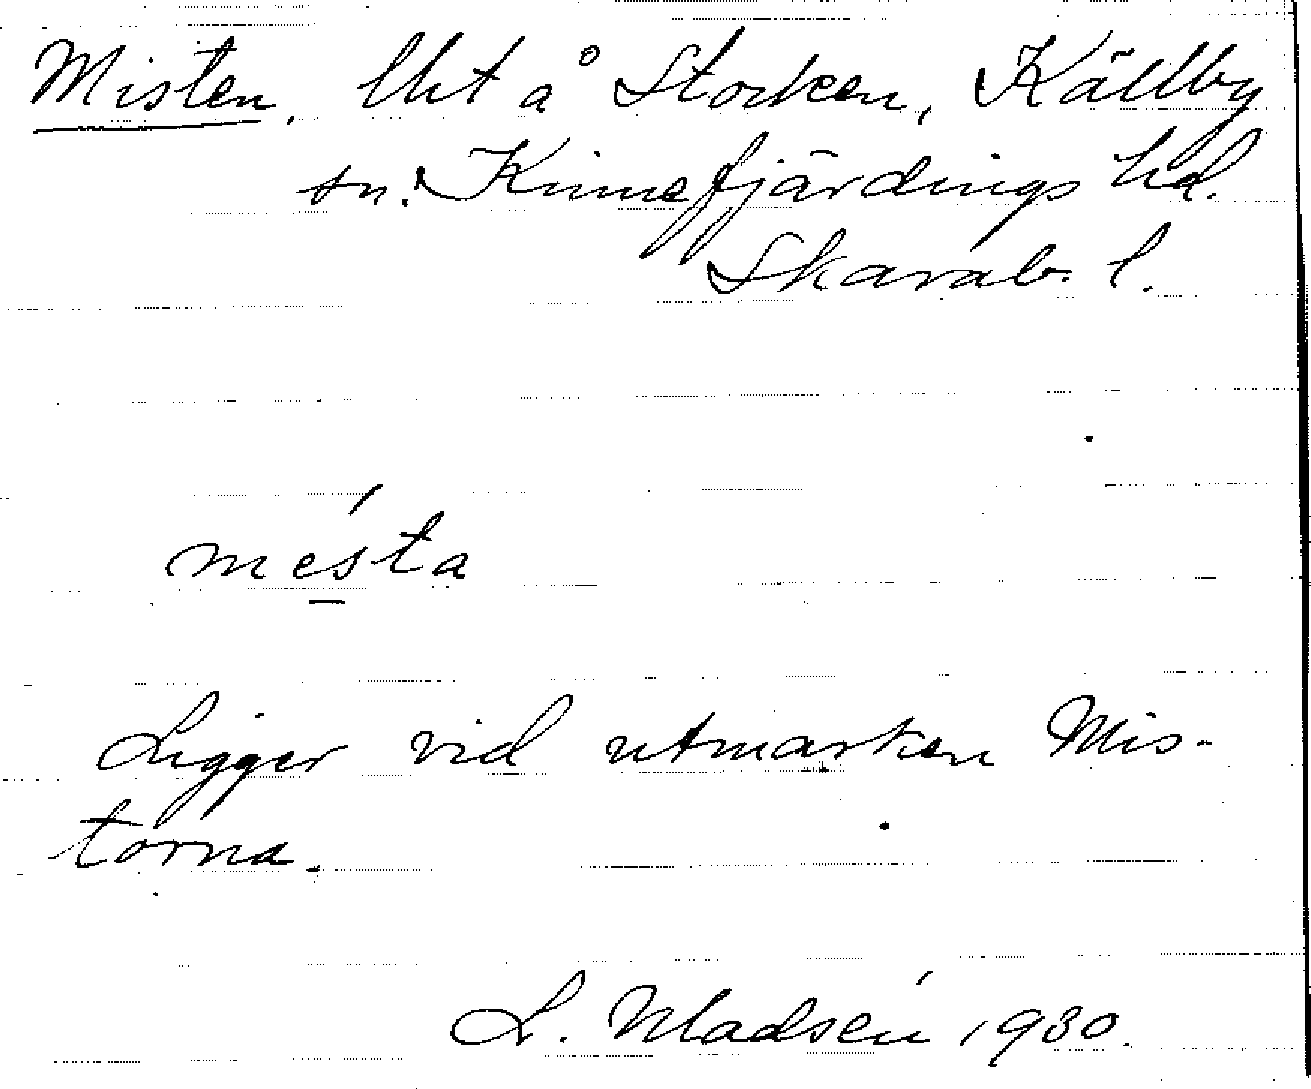 Misten, lht å Stocken, Källby
sn. Kinnefjärdings hd.
Skarab. l.
mésta
Ligger vid utmarken Mis-
torna.
L. Madsén 1930.